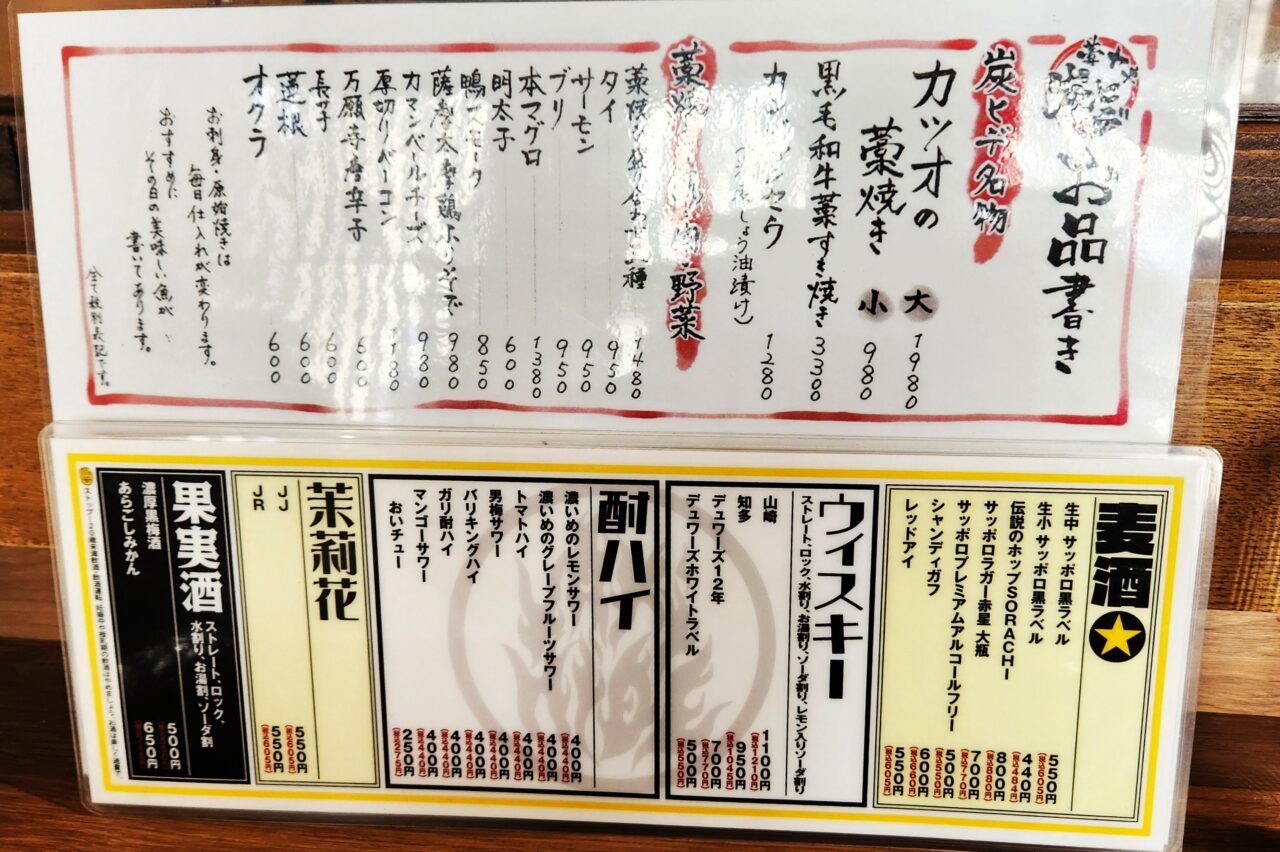 お品書き
炭ヒデ名物
カツオの藁焼き
大 1980
小 980
黒毛和牛藁すき焼き 3300
しょう油漬け） 1280
野菜
1480
タイ 950
サーモン 950
ブリ 950
本マグロ 1380
明太子 600
鴨スモーク 850
980
カマンベールチーズ 980
厚切りベーコン 1180
万願寺唐辛子 600
長芋 600
蓮根 600
オクラ 600
お刺身・原始焼きは
毎日仕入れが変わります。
おすすめに
その日の美味しい魚が
書いてあります。
全て税別表記です。
麦酒
生中 サッポロ黒ラベル 550円（税込605円）
生小 サッポロ黒ラベル 440円（税込484円）
伝説のホップSORACHI 800円（税込880円）
サッポロラガー赤星 大瓶 700円（税込770円）
サッポロプレミアムアルコールフリー 500円（税込550円）
シャンディガフ 600円（税込660円）
レッドアイ 550円（税込605円）
ウィスキー
ストレート、ロック、水割り、お湯割り、ソーダ割り、レモン入りソーダ割り
山崎 1100円（税込1210円）
知多 950円（税込1045円）
デュワーズ12年 700円（税込770円）
デュワーズホワイトラベル 500円（税込550円）
酎ハイ
濃いめのレモンサワー 400円（税込440円）
濃いめのグレープフルーツサワー 400円（税込440円）
トマトハイ 400円（税込440円）
男梅サワー 400円（税込440円）
バリキングハイ 400円（税込440円）
ガリ酎ハイ 400円（税込440円）
マンゴーサワー 400円（税込440円）
おいチュー 250円（税込275円）
茉莉花
JJ 550円（税込605円）
JR 550円（税込605円）
果実酒
ストレート、ロック、
水割り、お湯割、ソーダ割
濃厚黒梅酒 500円
あらごしみかん 650円